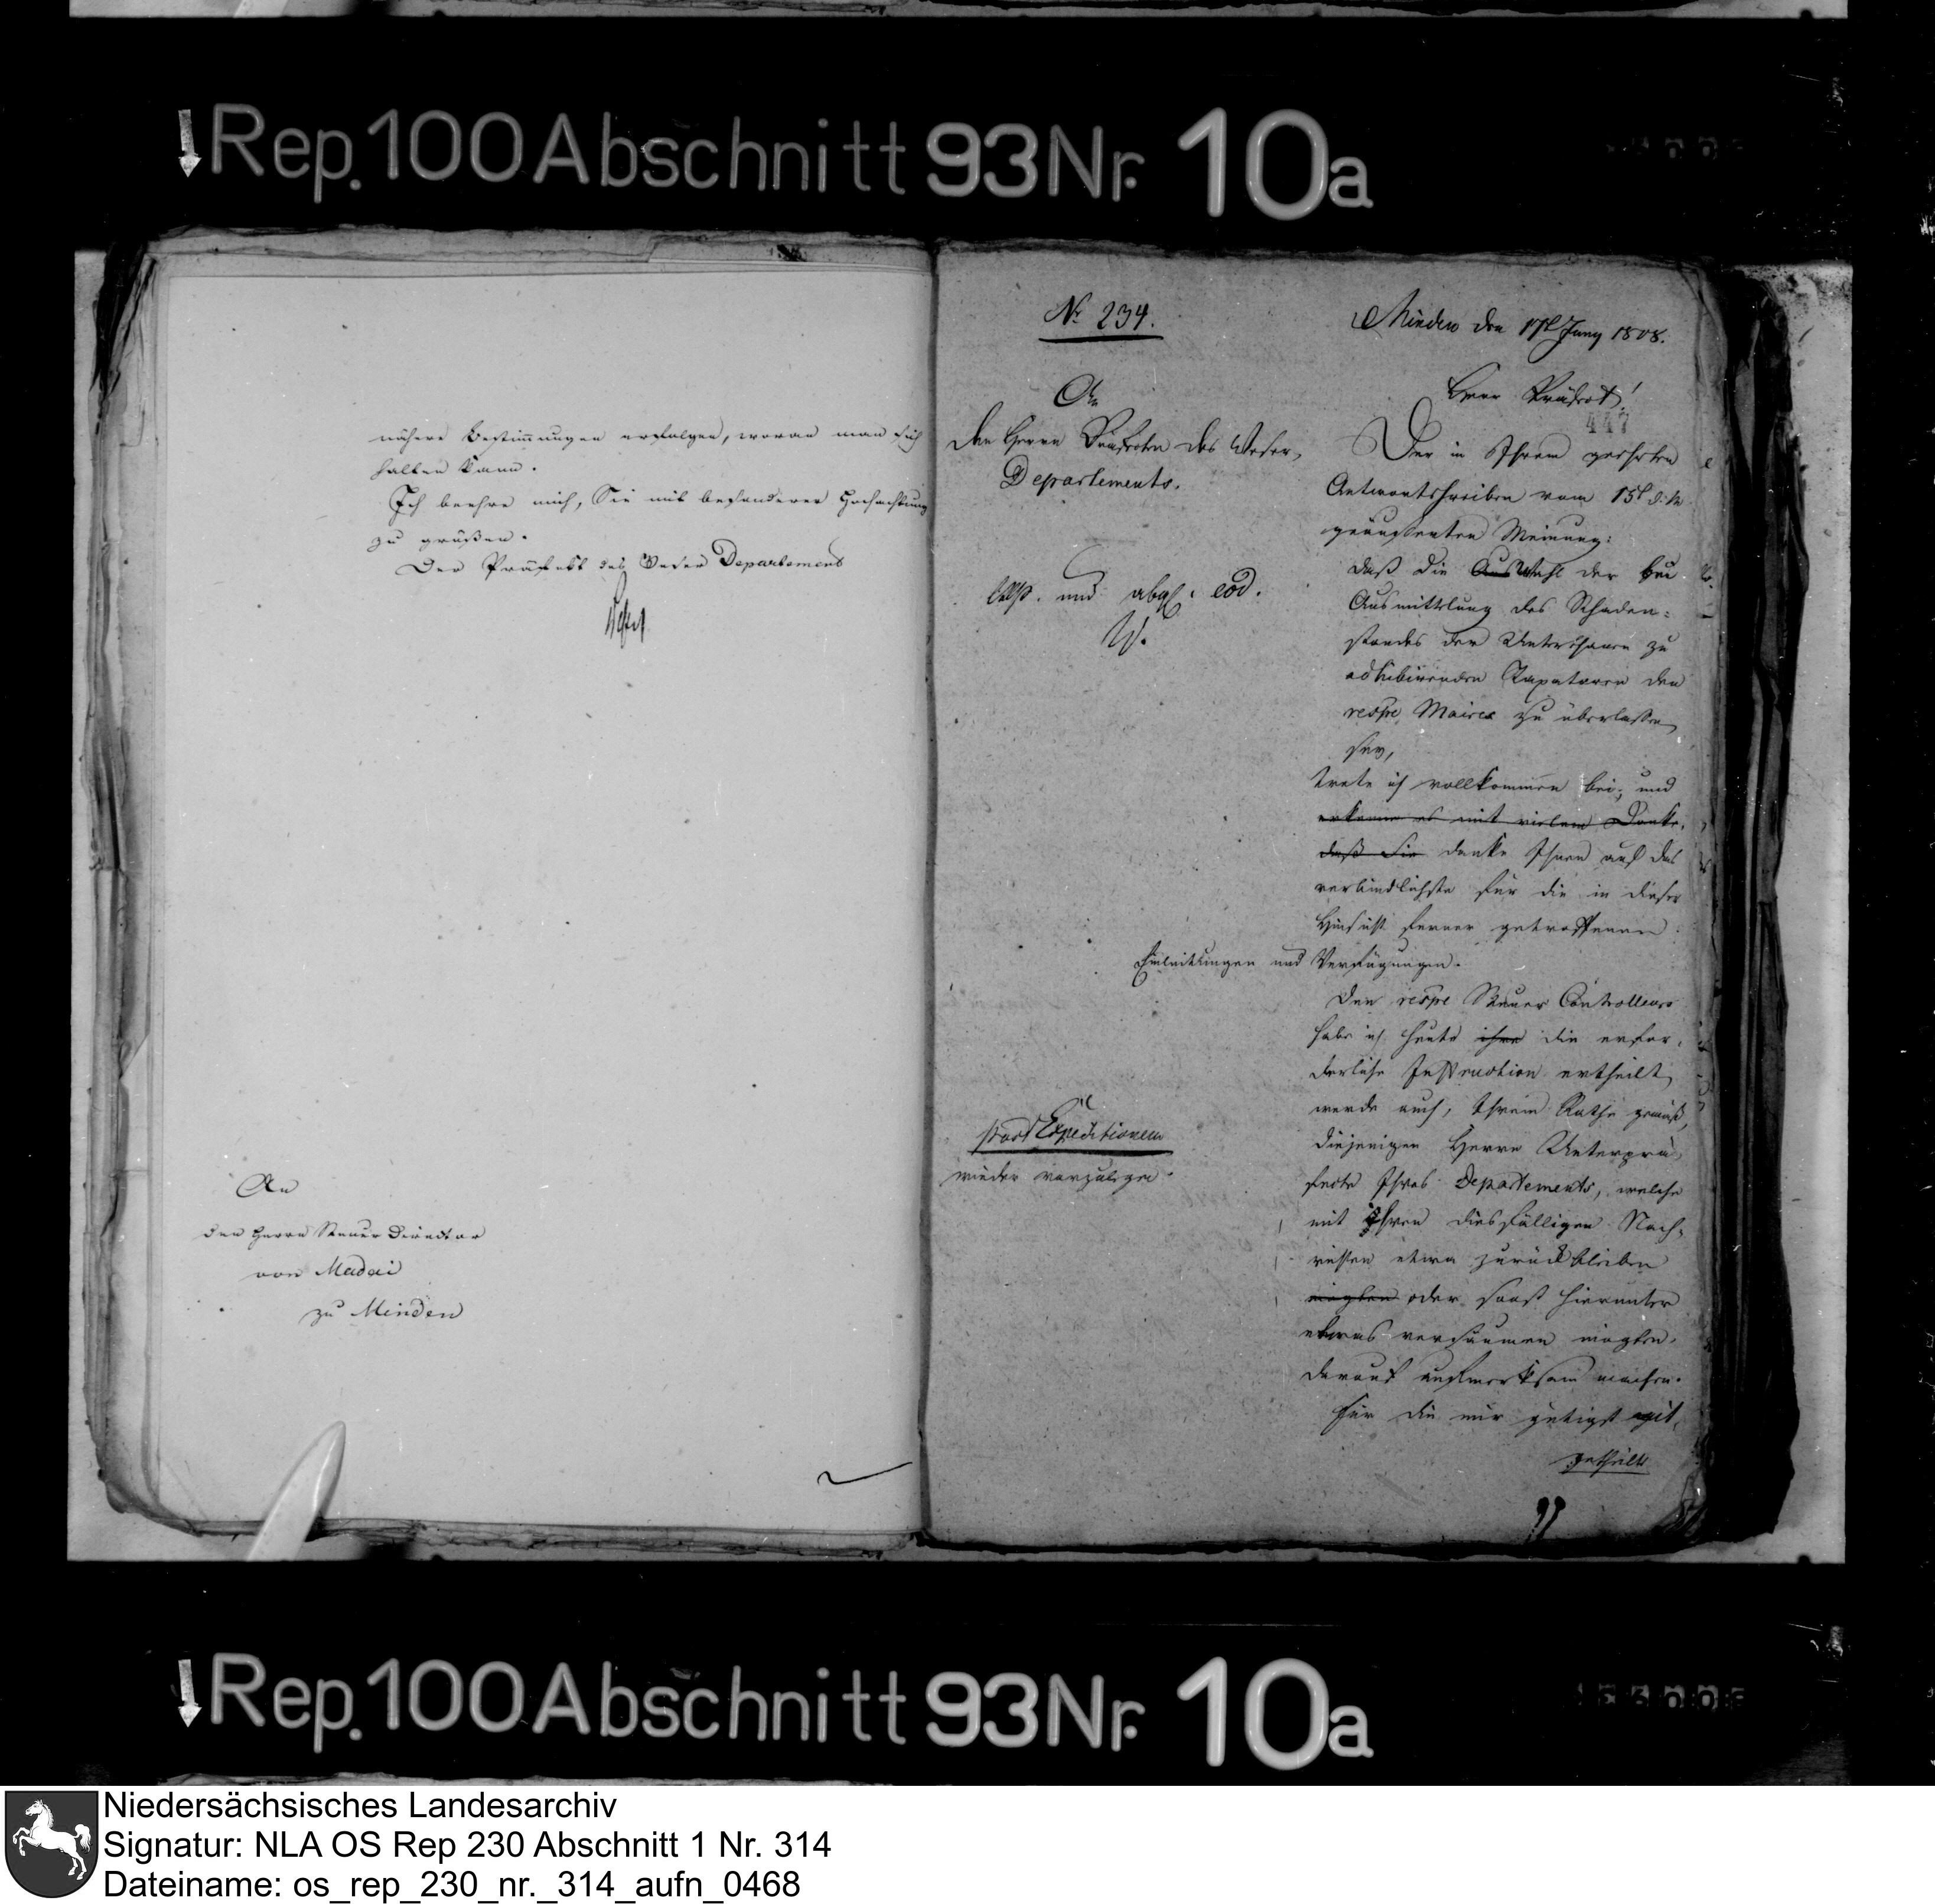 Rep. 100 Abschnitt 93 Nr. 10a
nähere Bestimmungen erfolgen, woran man sich
halten kann.
Ich beehre mich, Sie mit besonderer Hochachtung
zu grüßen.
Der Präfekt des Weser Departements
An
den Herrn Steuer Director
von Madai
zu Minden
No 234.
An
den Herrn Präfecten des Weser,
Departements.
exp. und abgs. eod.
W.
post Expeditionem
wieder vorzulegen.
Minden den 17t Juny 1808.
Herr Präfect!
447
Der in Ihrem geehrten
Antwortschreiben vom 15t d. M.
geäusserten Meinung:
daß die AusWahl der bei
Ausmittelung des Schaden=
standes der Unterthanen zu
adhibirenden Taxatoren den
respe Maires zu überlassen
sey,
trete ich vollkommen bei, und
erkenne es mit vielem Danke,
daß Sie danke Ihnen auf das
verbindlichste für die in dieser
Hinsicht ferner getroffenen
Einleitungen und Verfügungen.
Den respe Steuer Controlleurs
habe ich heute ihre die erfor,
derliche Instruction ertheilt,
werde auch, Ihrem Rathe gemäß,
diejenigen Herrn Unterprä,
fecte Ihres Departements, welche
mit Ihren diesfälligen Nach,
richten etwa zurückbleiben
mogten oder sonst hierunter
etwas versäumen mogten,
darauf aufmerksam machen.
Für die mir gütigst mit,
getheilte
Rep. 100 Abschnitt 93 Nr. 10a
Niedersächsisches Landesarchiv
Signatur: NLA OS Rep 230 Abschnitt 1 Nr. 314
Dateiname: os_rep_230_nr._314_aufn_0468